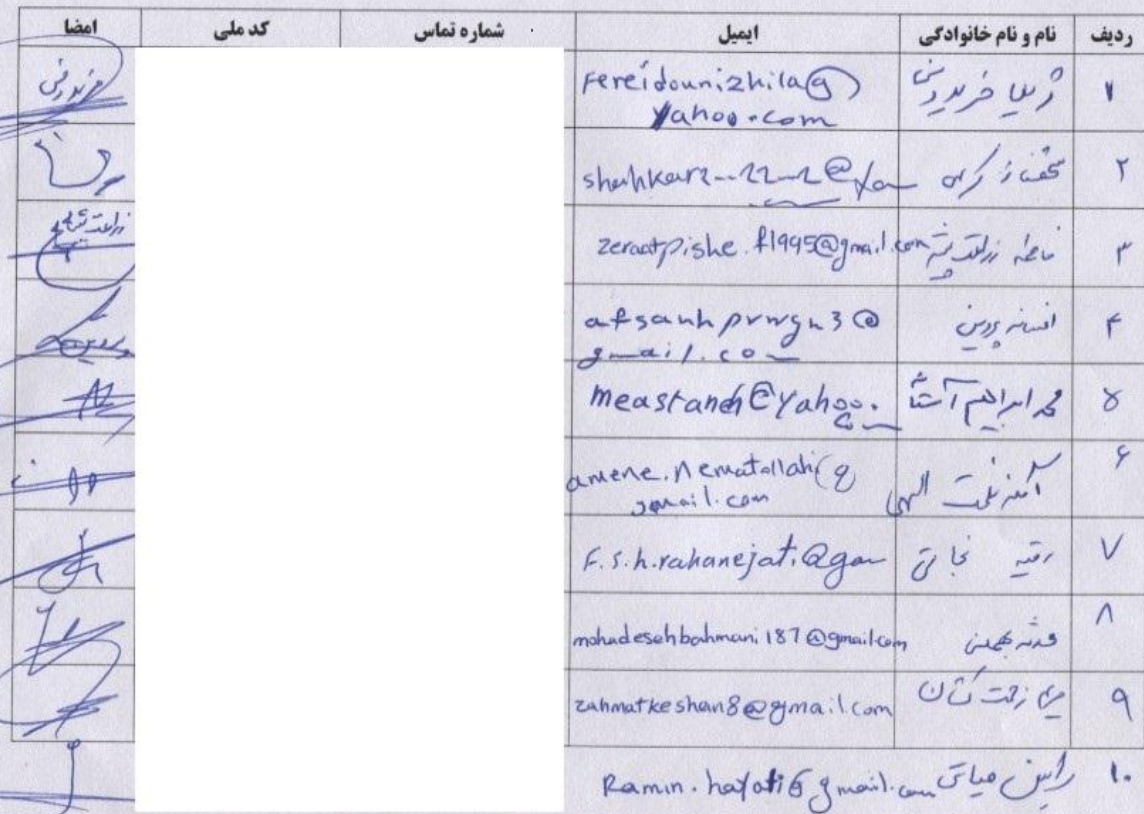 ردیف نام و نام خانوادگی ایمیل شماره تماس کد ملی امضا
۱ ژیلا فریدونی Fereidounizhila@
yahoo.com فریدونی
۲
۳ فاطمه زراعت پیشه zeraatpishe.f1995@gmail.com زراعت پیشه
۴ افسانه پروین afsanhprwyn3@
gmail.com
۵ محمد ابراهیم آستانه meastaneh@yahoo.
com
۶ آمنه نعمت الهی amene.nematollahi@
gmail.com
۷ رقیه نجاتی F.s.h.rahanejati@
۸ محدثه بهمنی mohadesehbahmani187@gmail.com
۹ مریم زحمت کشان zahmatkeshan8@gmail.com
۱۰ رامین حیاتی Ramin.hayati@gmail.com